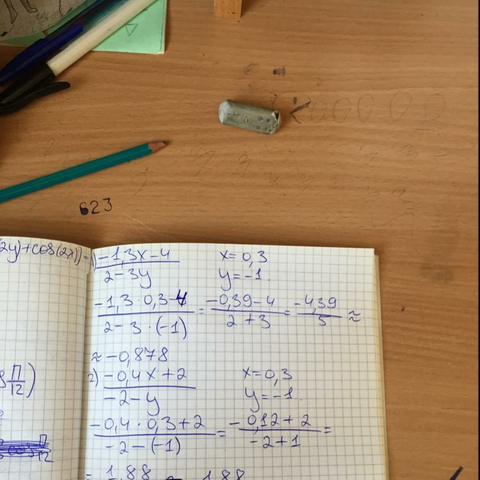 623
2y)+cos(2x))
1) (-1,3x-4)/(2-3y) x=0,3
y=-1
(-1,3·0,3-4)/(2-3·(-1)) = (-0,39-4)/(2+3) = (-4,39)/5 ≈
≈ -0,878
2) (-0,4x+2)/(-2-y) x=0,3
y=-1
(-0,4·0,3+2)/(-2-(-1)) = (-0,12+2)/(-2+1) =
П/12)
= 1,88 1,88